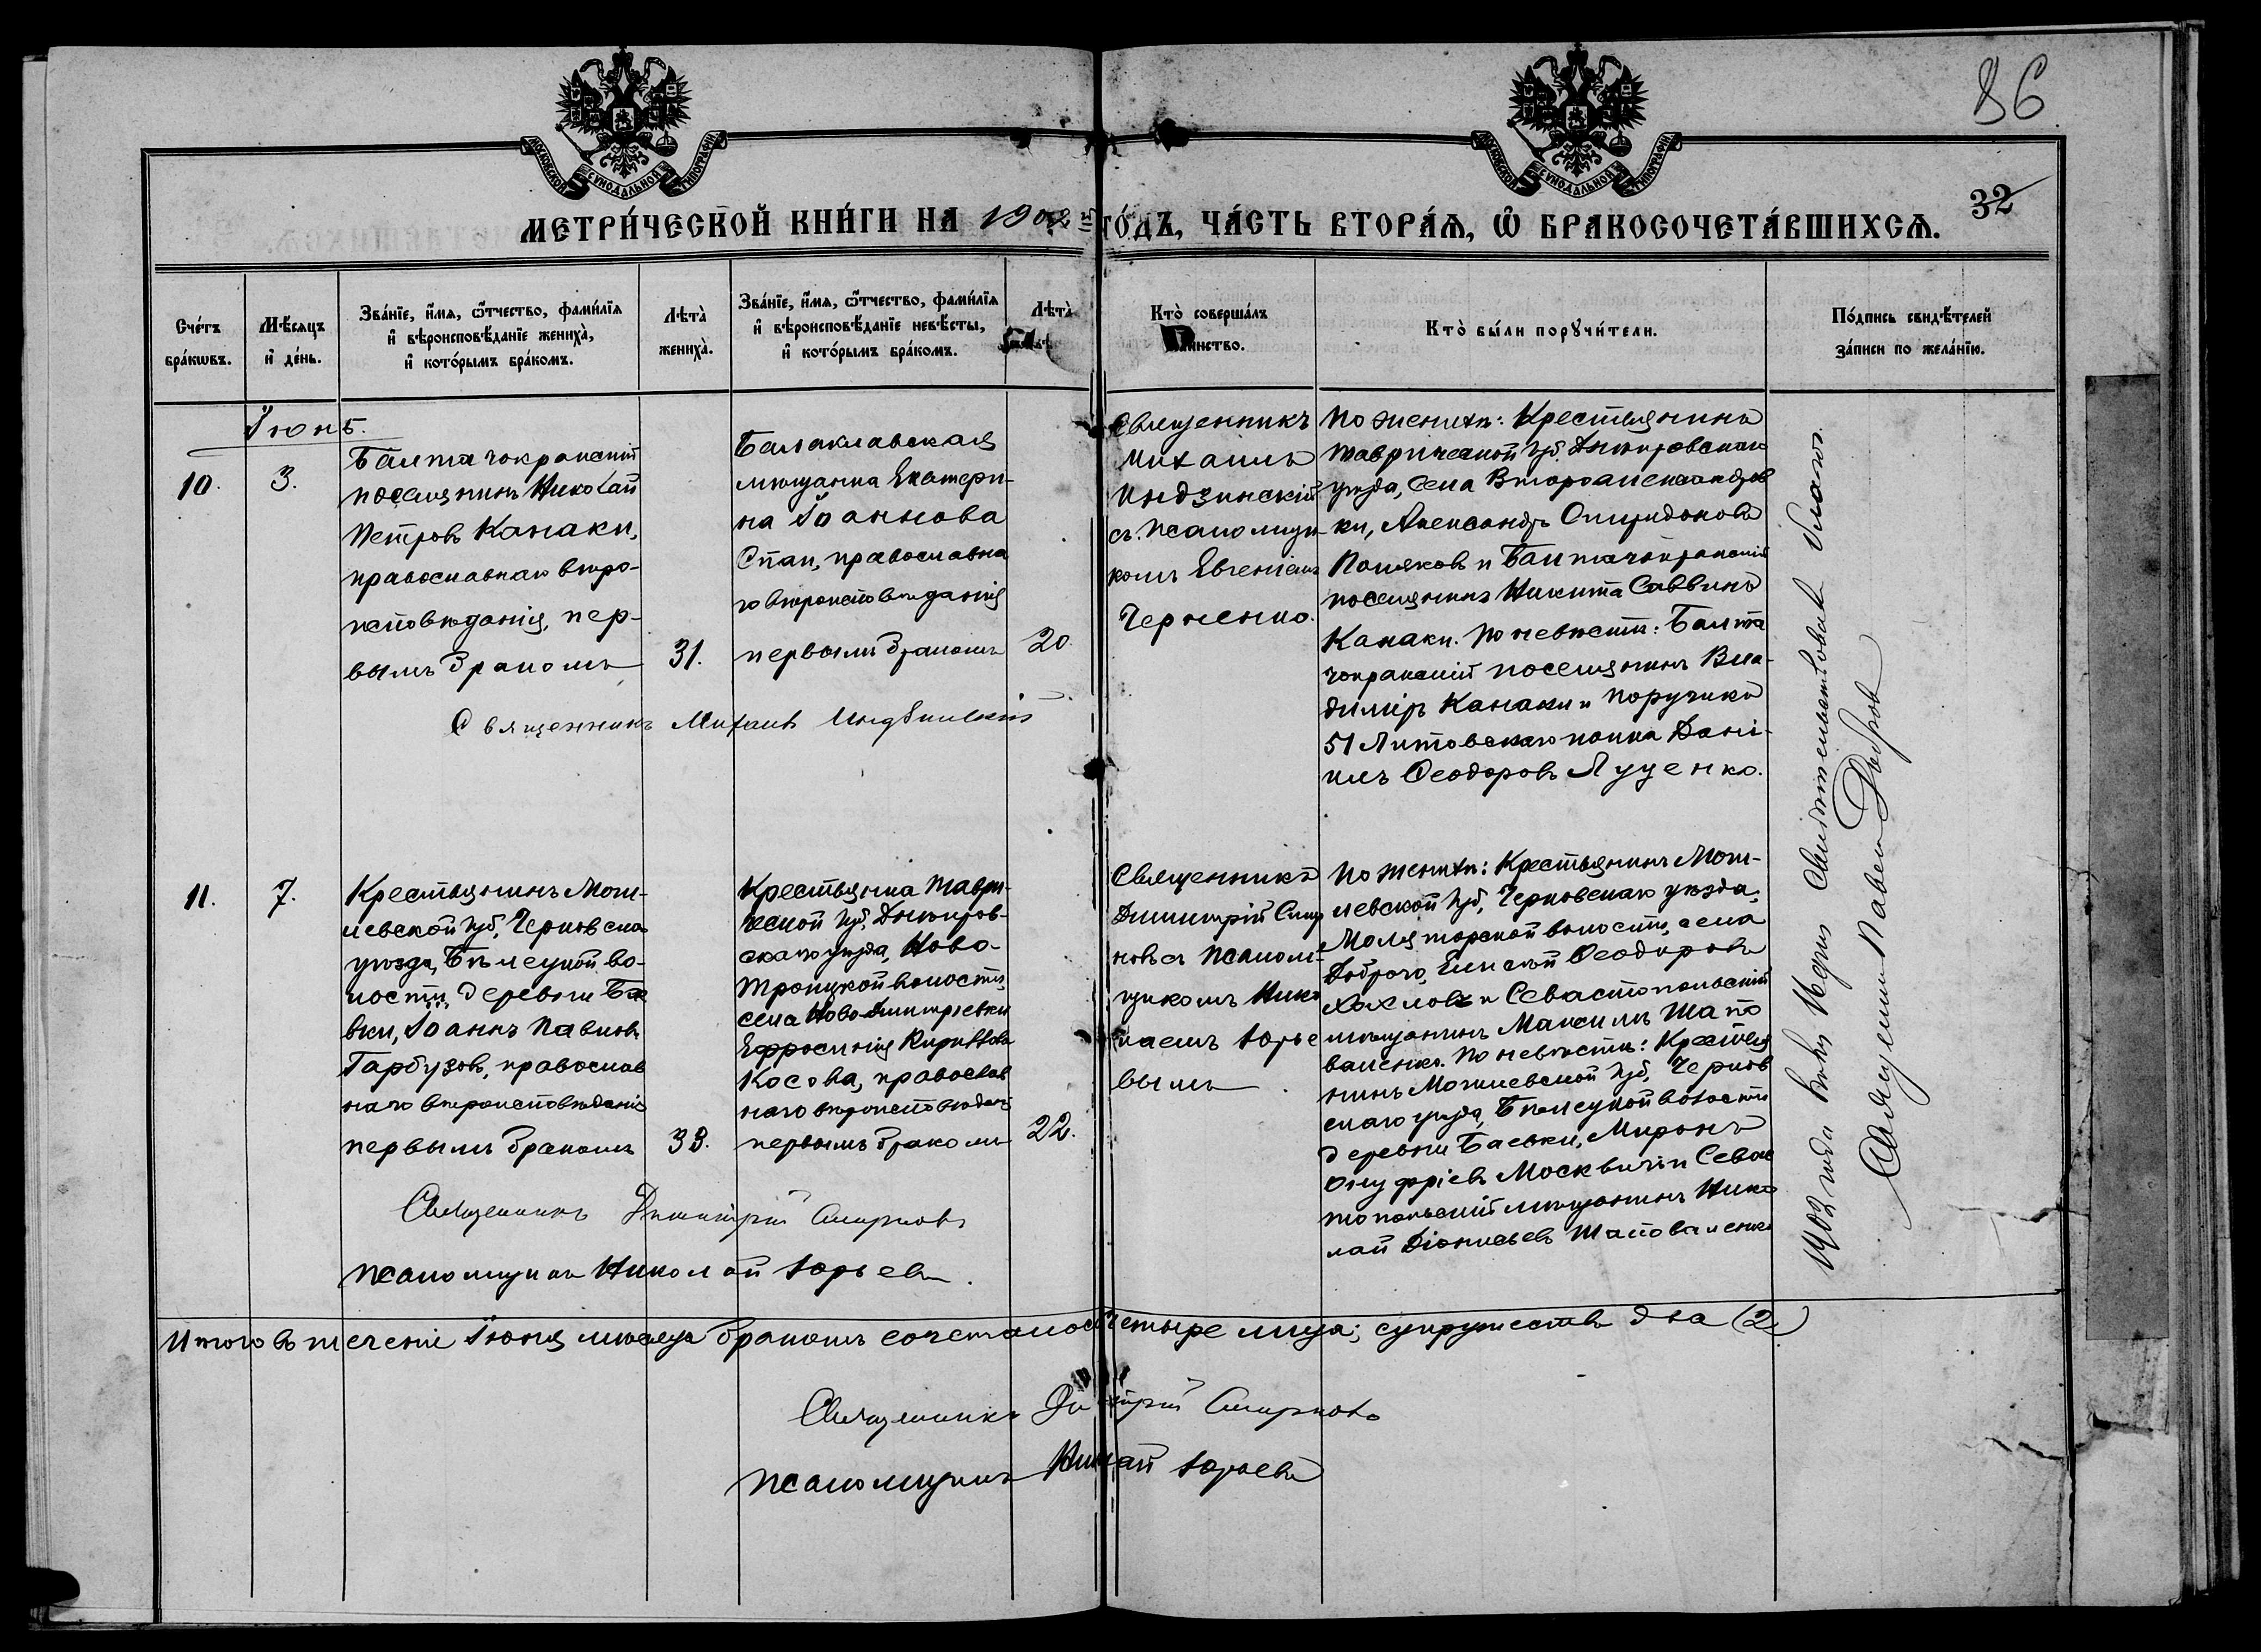 86
МОСКОВСКОЙ СѴНОДАЛЬНОЙ ТИПОГРАФІИ
МОСКОВСКОЙ СѴНОДАЛЬНОЙ ТИПОГРАФІИ
32
МЕТРИ́ЧЕСКОЙ КНИ́ГИ НА 1902 ГО́ДЪ, ЧА́СТЬ ВТОРА́Ѧ, Ѡ БРАКОСОЧЕТА́ВШИХСѦ.
Сче́тъ
бра́кѡвъ.
Мѣ́сѧцъ
и҆ де́нь.
Зва́нїе, и҆́мѧ, ѻ҆́тчество, фами́лїѧ
и҆ вѣроисповѣ́данїе жениха̀,
и҆ кото́рымъ бра́комъ.
Лѣта̀
жениха̀.
Зва́нїе, и҆́мѧ, ѻ҆́тчество, фами́лїѧ
и҆ вѣроисповѣ́данїе невѣ́сты,
и҆ кото́рымъ бра́комъ.
Лѣта̀
Кто̀ соверша́лъ
таинство.
Кто̀ бы́ли порꙋчи́тели.
По́дпись свидѣ́телей
за́писи по жела́нїю.
Іюнь.
10.
3.
Балтачокракскій
поселянинъ Николай
Петровъ Канаки,
православнаго вѣро-
исповѣданія, пер-
вымъ бракомъ
31.
Балаклавская
мѣщанка Екатери-
на Іоаннова
Спаи, православна
го вѣроисповѣданія
первымъ бракомъ
20.
Священникъ
Михаилъ
Индзинскій
съ псаломщи-
комъ Евгеніемъ
Черненко.
По женихѣ: Крестьянинъ
Таврической губ. Днѣпровскаго
уѣзда, села Второалександров
ки, Александръ Спиридоновъ
Поляковъ и Балтачокракскій
поселянинъ Никита Саввинъ
Канаки. По невѣстѣ: Балта
чокракскій поселянинъ Вла-
диміръ Канаки и поручикъ
51 Литовскаго полка Дані-
илъ Ѳеодоровъ Луценко.
Священникъ Михаилъ Индзинскій
11.
7.
Крестьянинъ Моги-
левской губ., Чериковска
уѣзда, Бѣлецкой во-
лости, деревни Бае
вки, Іоаннъ Павловъ
Гарбузовъ, православ
наго вѣроисповѣданія
первымъ бракомъ
33.
Крестьянка Таври-
ческой губ., Днѣпров-
скаго уѣзда, Ново-
троицкой волости,
села Ново-Дмитріевки
Ефросинія Кириллова
Косова, православ
наго вѣроисповѣдан
первымъ бракомъ
22.
Священникъ
Димитрій Смир
новъ съ псалом-
щикомъ Нико
лаемъ Юрье
вымъ
По женихѣ: Крестьянинъ Моги-
левской губ., Чериковскаго уѣзда,
волости, села
Доброго, Елисей Ѳеодоровъ
Хохловъ и Севастопольскій
мѣщанинъ Максимъ Шапо
валенко. По невѣстѣ: Крестья
нинъ Могилевской губ., Чериков
скаго уѣзда, Бѣлецкой волости
деревни Баевки, Миронъ
Онуфріевъ Москвичъ и Севас
топольскій мѣщанинъ Нико
лай Діонисьевъ Шаповаленко
Священникъ Димитрій Смирновъ
Псаломщикъ Николай Юрьевъ.
1902 года свидѣтельствовалъ
Священникъ Павелъ
Итого въ теченіе Іюня мѣсяца бракомъ сочеталось четыре лица; супружествъ два (2)
Священникъ Димитрій Смирновъ
Псаломщикъ Николай Юрьевъ